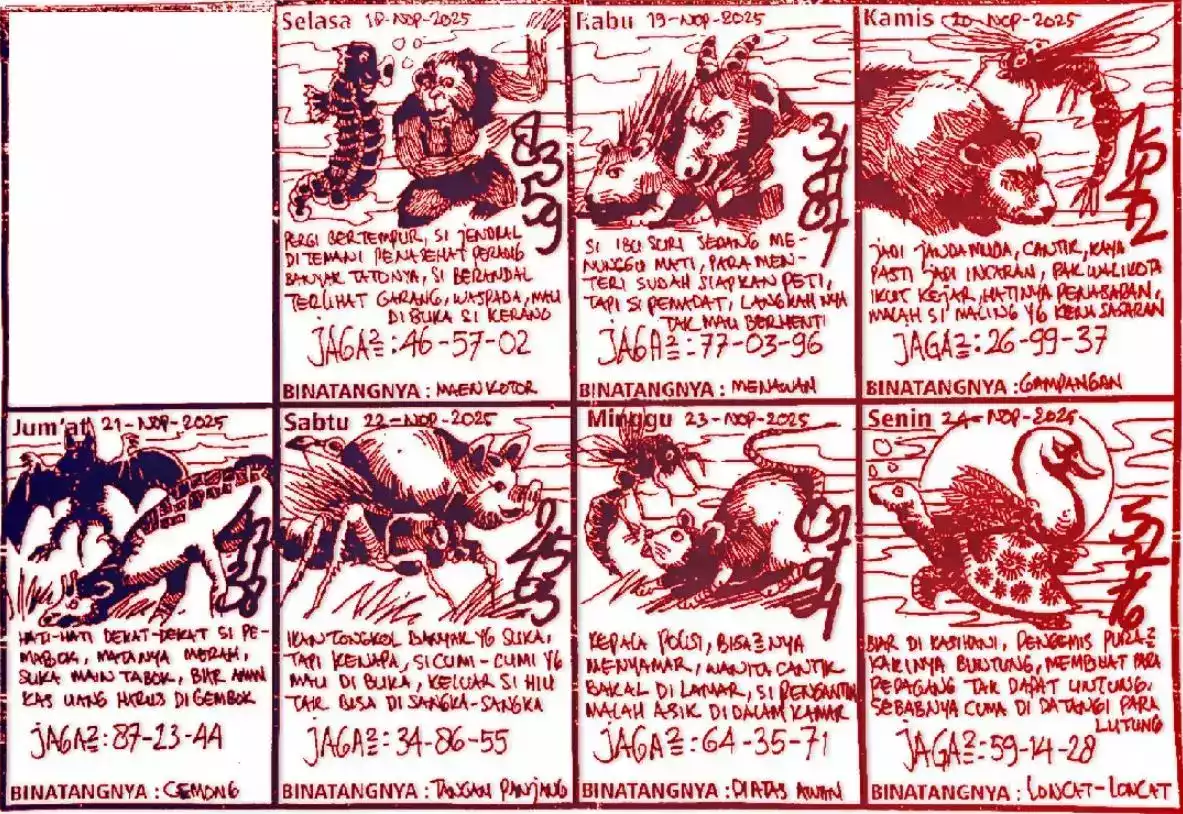 Selasa 18-NOP-2025
8
3
5
9
PERGI BERTEMPUR, SI JENDRAL
DITEMANI PENASEHAT PERANG
BANYAK TATONYA, SI BERANDAL
TERLIHAT GARANG, WASPADA, MAU
DIBUKA SI KERANG
JAGA2=:46-57-02
BINATANGNYA : MAEN KOTOR
Rabu 19-NOP-2025
SI IBU SURI SEDANG ME-
NUNGGU MATI, PARA MEN-
TERI SUDAH SIAPKAN PETI,
TAPI SI PEMADAT, LANGKAH NYA
TAK MAU BERHENTI
JAGA2=:77-03-96
BINATANGNYA : MENAWAN
Kamis 20-NOP-2025
JADI JANDA MUDA, CANTIK, KAYA
PASTI JADI INCARAN, PAK WALIKOTA
IKUT KEJAR, HATINYA PENASARAN,
MALAH SI MALING YG KENA SASARAN
JAGA2=:26-99-37
BINATANGNYA : GAMPANGAN
Jum'at 21-NOP-2025
HATI-HATI DEKAT-DEKAT SI PE-
MABOK, MATANYA MERAH,
SUKA MAIN TABOK, BIAR AMAN
KAS UANG HARUS DI GEMBOK
JAGA2=:87-23-44
BINATANGNYA : CEMONG
Sabtu 22-NOP-2025
IKAN TONGKOL BANYAK YG SUKA,
TAPI KENAPA, SI CUMI-CUMI YG
MAU DI BUKA, KELUAR SI HIU
TAK BISA DI SANGKA-SANGKA
JAGA2=:34-86-55
BINATANGNYA : TANGAN PANJANG
Minggu 23-NOP-2025
KEPALA POLISI, BISA2NYA
MENYAMAR, WANITA CANTIK
BAKAL DI LAMAR, SI PENGANTIN
MALAH ASIK DI DALAM KAMAR
JAGA2=:64-35-71
BINATANGNYA : DIATAS AWAN
Senin 24-NOP-2025
5
2
7
6
BIAR DI KASIHANI, PENGEMIS PURA2
KAKINYA BUNTUNG, MEMBUAT PARA
PEDAGANG TAK DAPAT UNTUNG,
SEBABNYA CUMA DI DATANGI PARA
LUTUNG
JAGA2=:59-14-28
BINATANGNYA : LONCAT-LONCAT